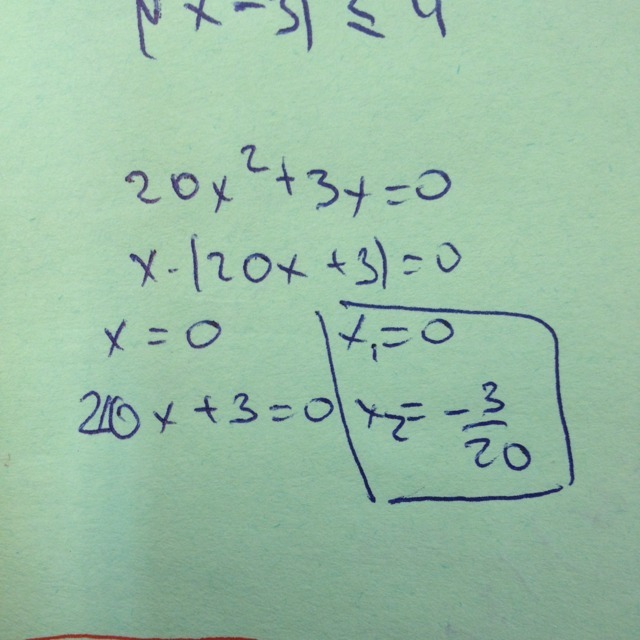 |x-3| ≤ 4
20x²+3x=0
x·(20x+3)=0
x=0
x₁=0
20x+3=0
x₂=-3/20